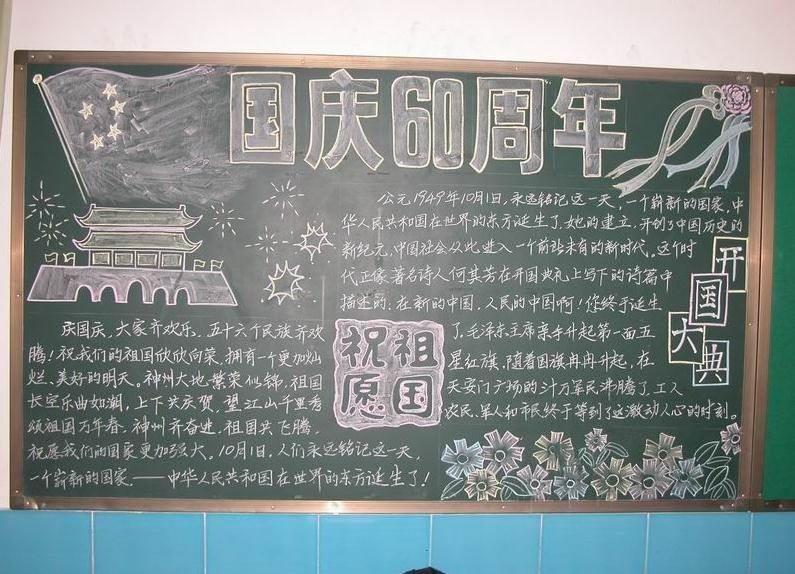 国庆60周年
公元1949年10月1日,永远铭记这一天,一个崭新的国家,中
华人民共和国在世界的东方诞生了,她的建立,开创了中国历史的
新纪元,中国社会从此进入一个前所未有的新时代。这个时
代正像著名诗人何其芳在开国典礼上写下的诗篇中
描述的:在新的中国,人民的中国啊!你终于诞生
了,毛泽东主席亲手升起第一面五
星红旗,随着国旗冉冉升起,在
天安门广场的卅万军民沸腾了,工人
农民、军人和市民终于等到了这激动人心的时刻。
开国大典
祝祖
愿国
庆国庆,大家齐欢乐,五十六个民族齐欢
腾!祝我们的祖国欣欣向荣,拥有一个更加灿
烂、美好的明天。神州大地繁荣似锦,祖国
长空乐曲如潮,上下共庆贺,望江山千里秀
颂祖国万年春,神州齐奋进,祖国共飞腾,
祝愿我们的国家更加强大,10月1日,人们永远铭记这一天,
一个崭新的国家,——中华人民共和国在世界的东方诞生了!